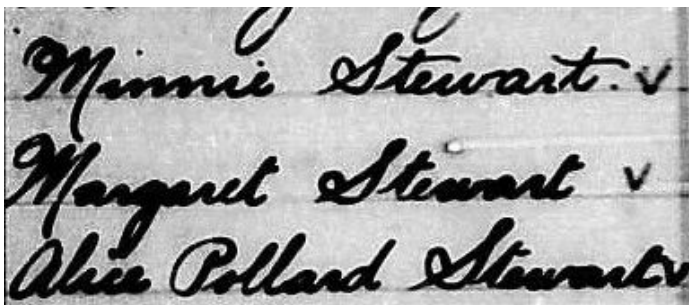 Minnie Stewart. v
Margaret Stewart v
Alice Pollard Stewart v